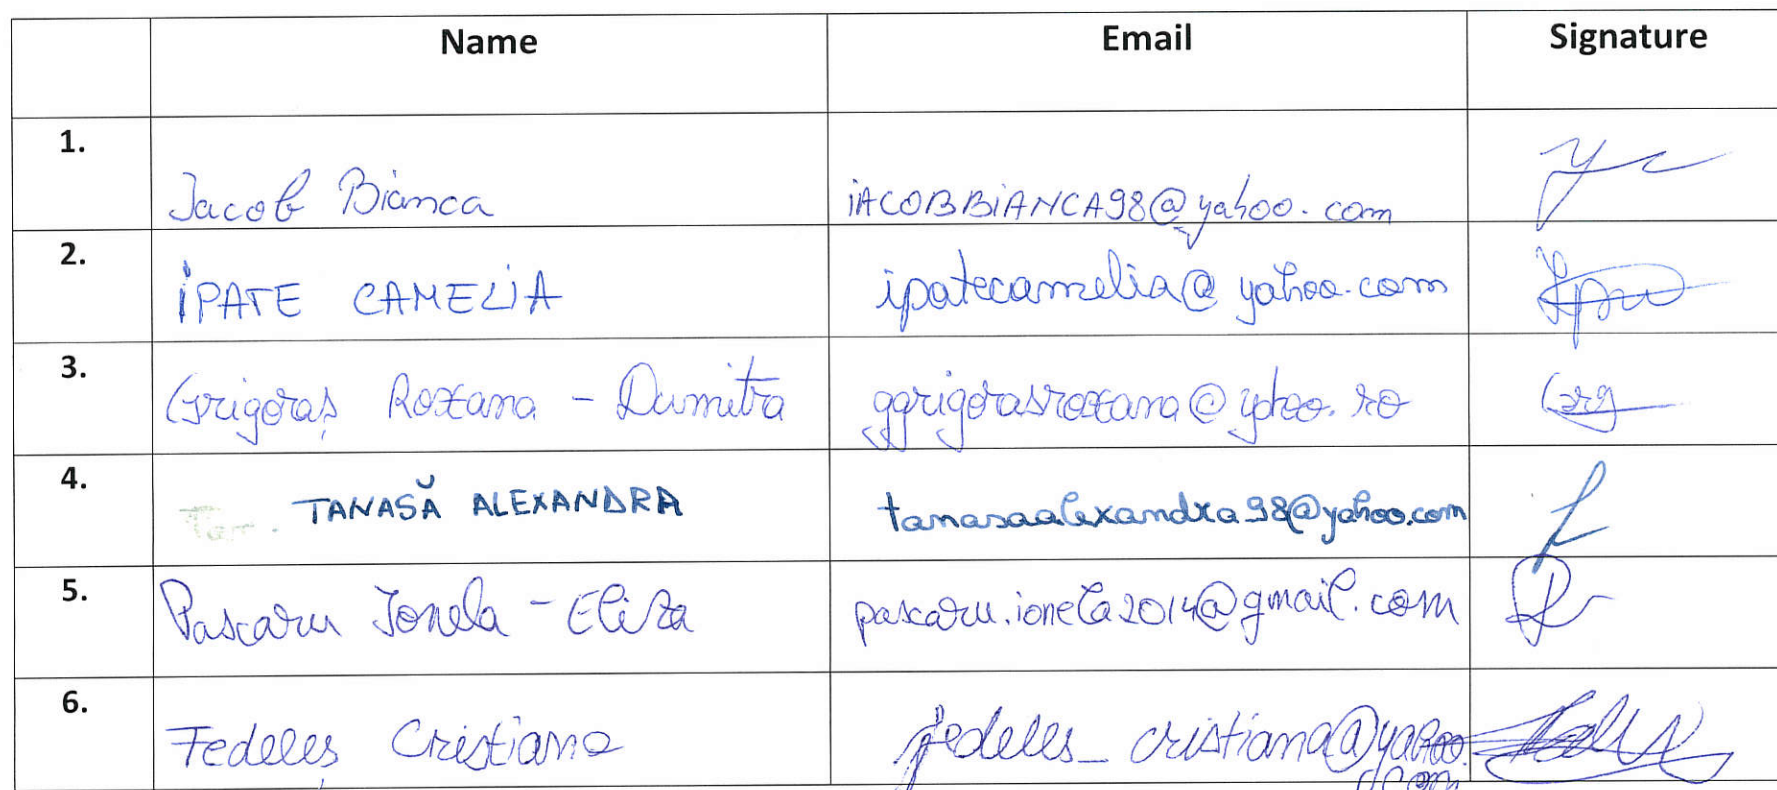 Name Email Signature
1. Iacob Bianca iACOBBiANCA98@yahoo.com
2. iPATE CAMELiA ipatecamelia@yahoo.com
3. Grigoraș Roxana - Dumitra ggrigorasroxana@yahoo.ro
4. TANASĂ ALEXANDRA tanasaalexandra98@yahoo.com
5. Pascaru Ionela - Eliza pascaru.ionela2014@gmail.com
6. Fedeleș Cristiana fedeles_cristiana@yahoo.
com